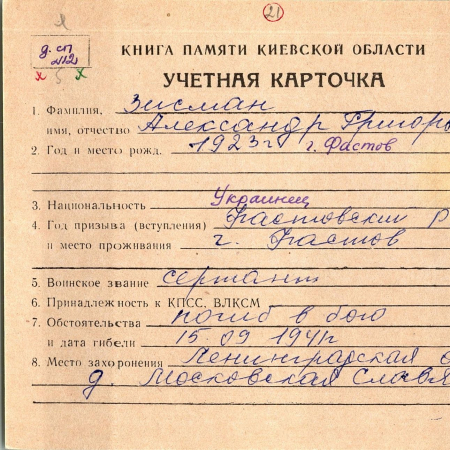 21
д. сп
КНИГА ПАМЯТИ КИЕВСКОЙ ОБЛАСТИ
УЧЕТНАЯ КАРТОЧКА
1. Фамилия, Зисман
имя, отчество Александр Григорь
2. Год и место рожд. 1923г г. Фастов
3. Национальность Украинец
4. Год призыва (вступления) Фастовский Р
и место проживания г. Фастов
5. Воинское звание сержант
6. Принадлежность к КПСС, ВЛКСМ
7. Обстоятельства погиб в бою
и дата гибели 15.09 1941г
8. Место захоронения Ленинградская о
д. Московская Славя